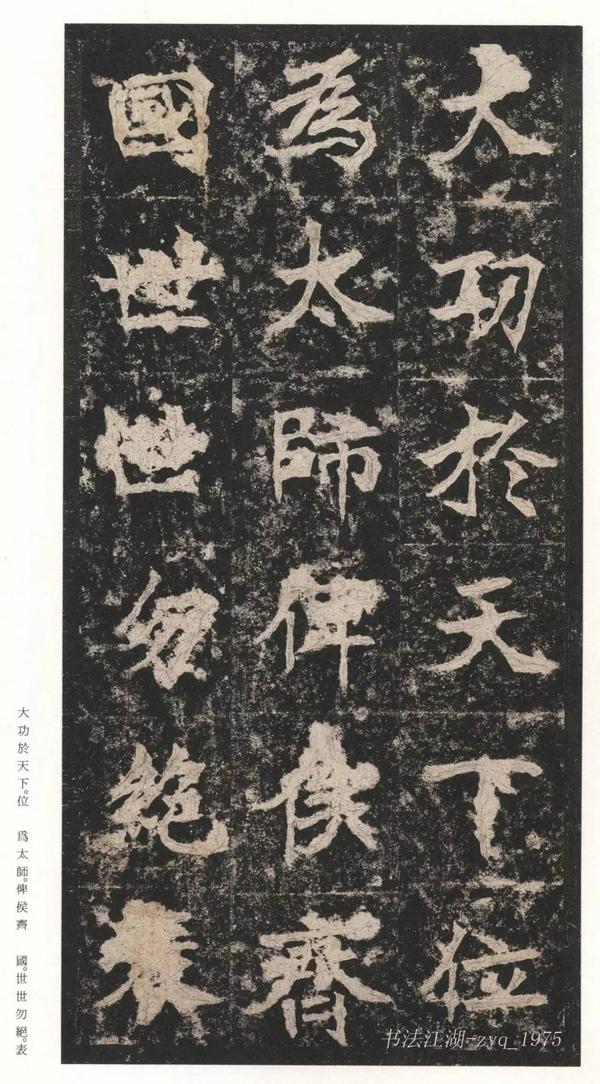 大功於天下位
為太師俾侯齊
國世世勿絕表
大功於天下。位　為太師。俾侯齊　國。世世勿絕。表
书法江湖-zyq_1975